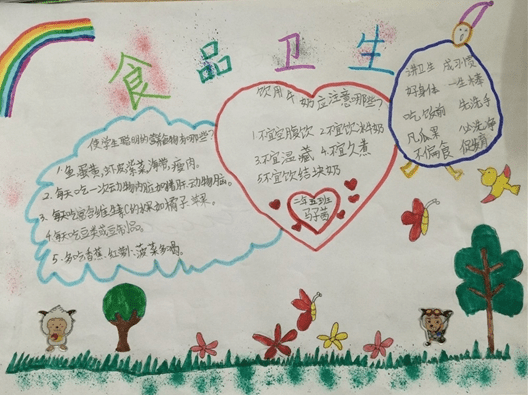 食品卫生
使学生聪明的食物有哪些?
1.鱼、蛋黄、虾皮、紫菜、海带、瘦肉。
2.每天吃一次动物内脏如猪肝、动物脑。
3.每天吃富含维生素C的水果如橘子苹果。
4.每天吃豆类或豆制品。
5.多吃香蕉、红薯、菠菜
饮用牛奶应注意哪些?
1不宜空腹饮 2不宜饮冰奶
3不宜温藏 4不宜久煮
5不宜饮结块奶
二年五班
讲卫生 成习惯
好身体 一生棒
吃饭前 先洗手
凡瓜果 必洗净
不偏食 保发育